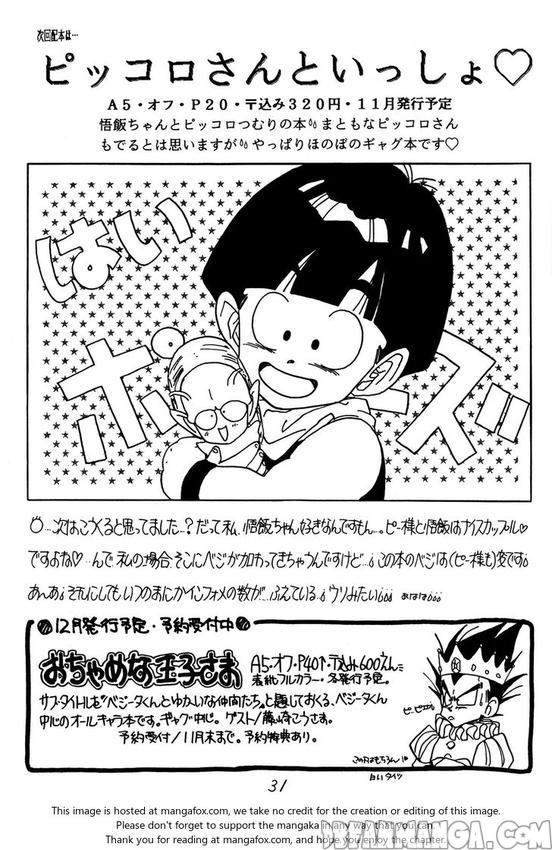 次回配本は…
ピッコロさんといっしょ♡
A5・オフ・P20・〒込み320円・11月発行予定
悟飯ちゃんとピッコロつむりの本 まともなピッコロさん
もでるとは思いますが やっぱりほのぼのギャグ本です♡
はい
ポーズ
次はこうくると思ってました…?だって私、悟飯ちゃん好きなんですもん…。ピー様と悟飯はナイスカップル♡
ですよね♡…んで私の場合、そこにベジが加わってきちゃうんですけど…。この本のベジは(ピー様も)変です
あんあ それにしても いつのまにかインフォメの数が…ふえている。ウリみたい あはは
12月発行予定・予約受付中
おちゃめな王子さま
A5・オフ・P40↑・〒込み600えん
表紙フルカラー・冬発行予定。
サブ・タイトルを『ベジータくんとゆかいな仲間たち』と題しておくる、ベジータくん
中心のオールキャラ本です。ギャグ中心。ゲスト/
予約受付/11月末まで。予約特典あり。
白いタイツ
31
This image is hosted at mangafox.com, we take no credit for the creation or editing of this image.
Please don't forget to support the mangaka in any way that you can.
Thank you for reading at mangafox.com, and hope you enjoy the chapter.